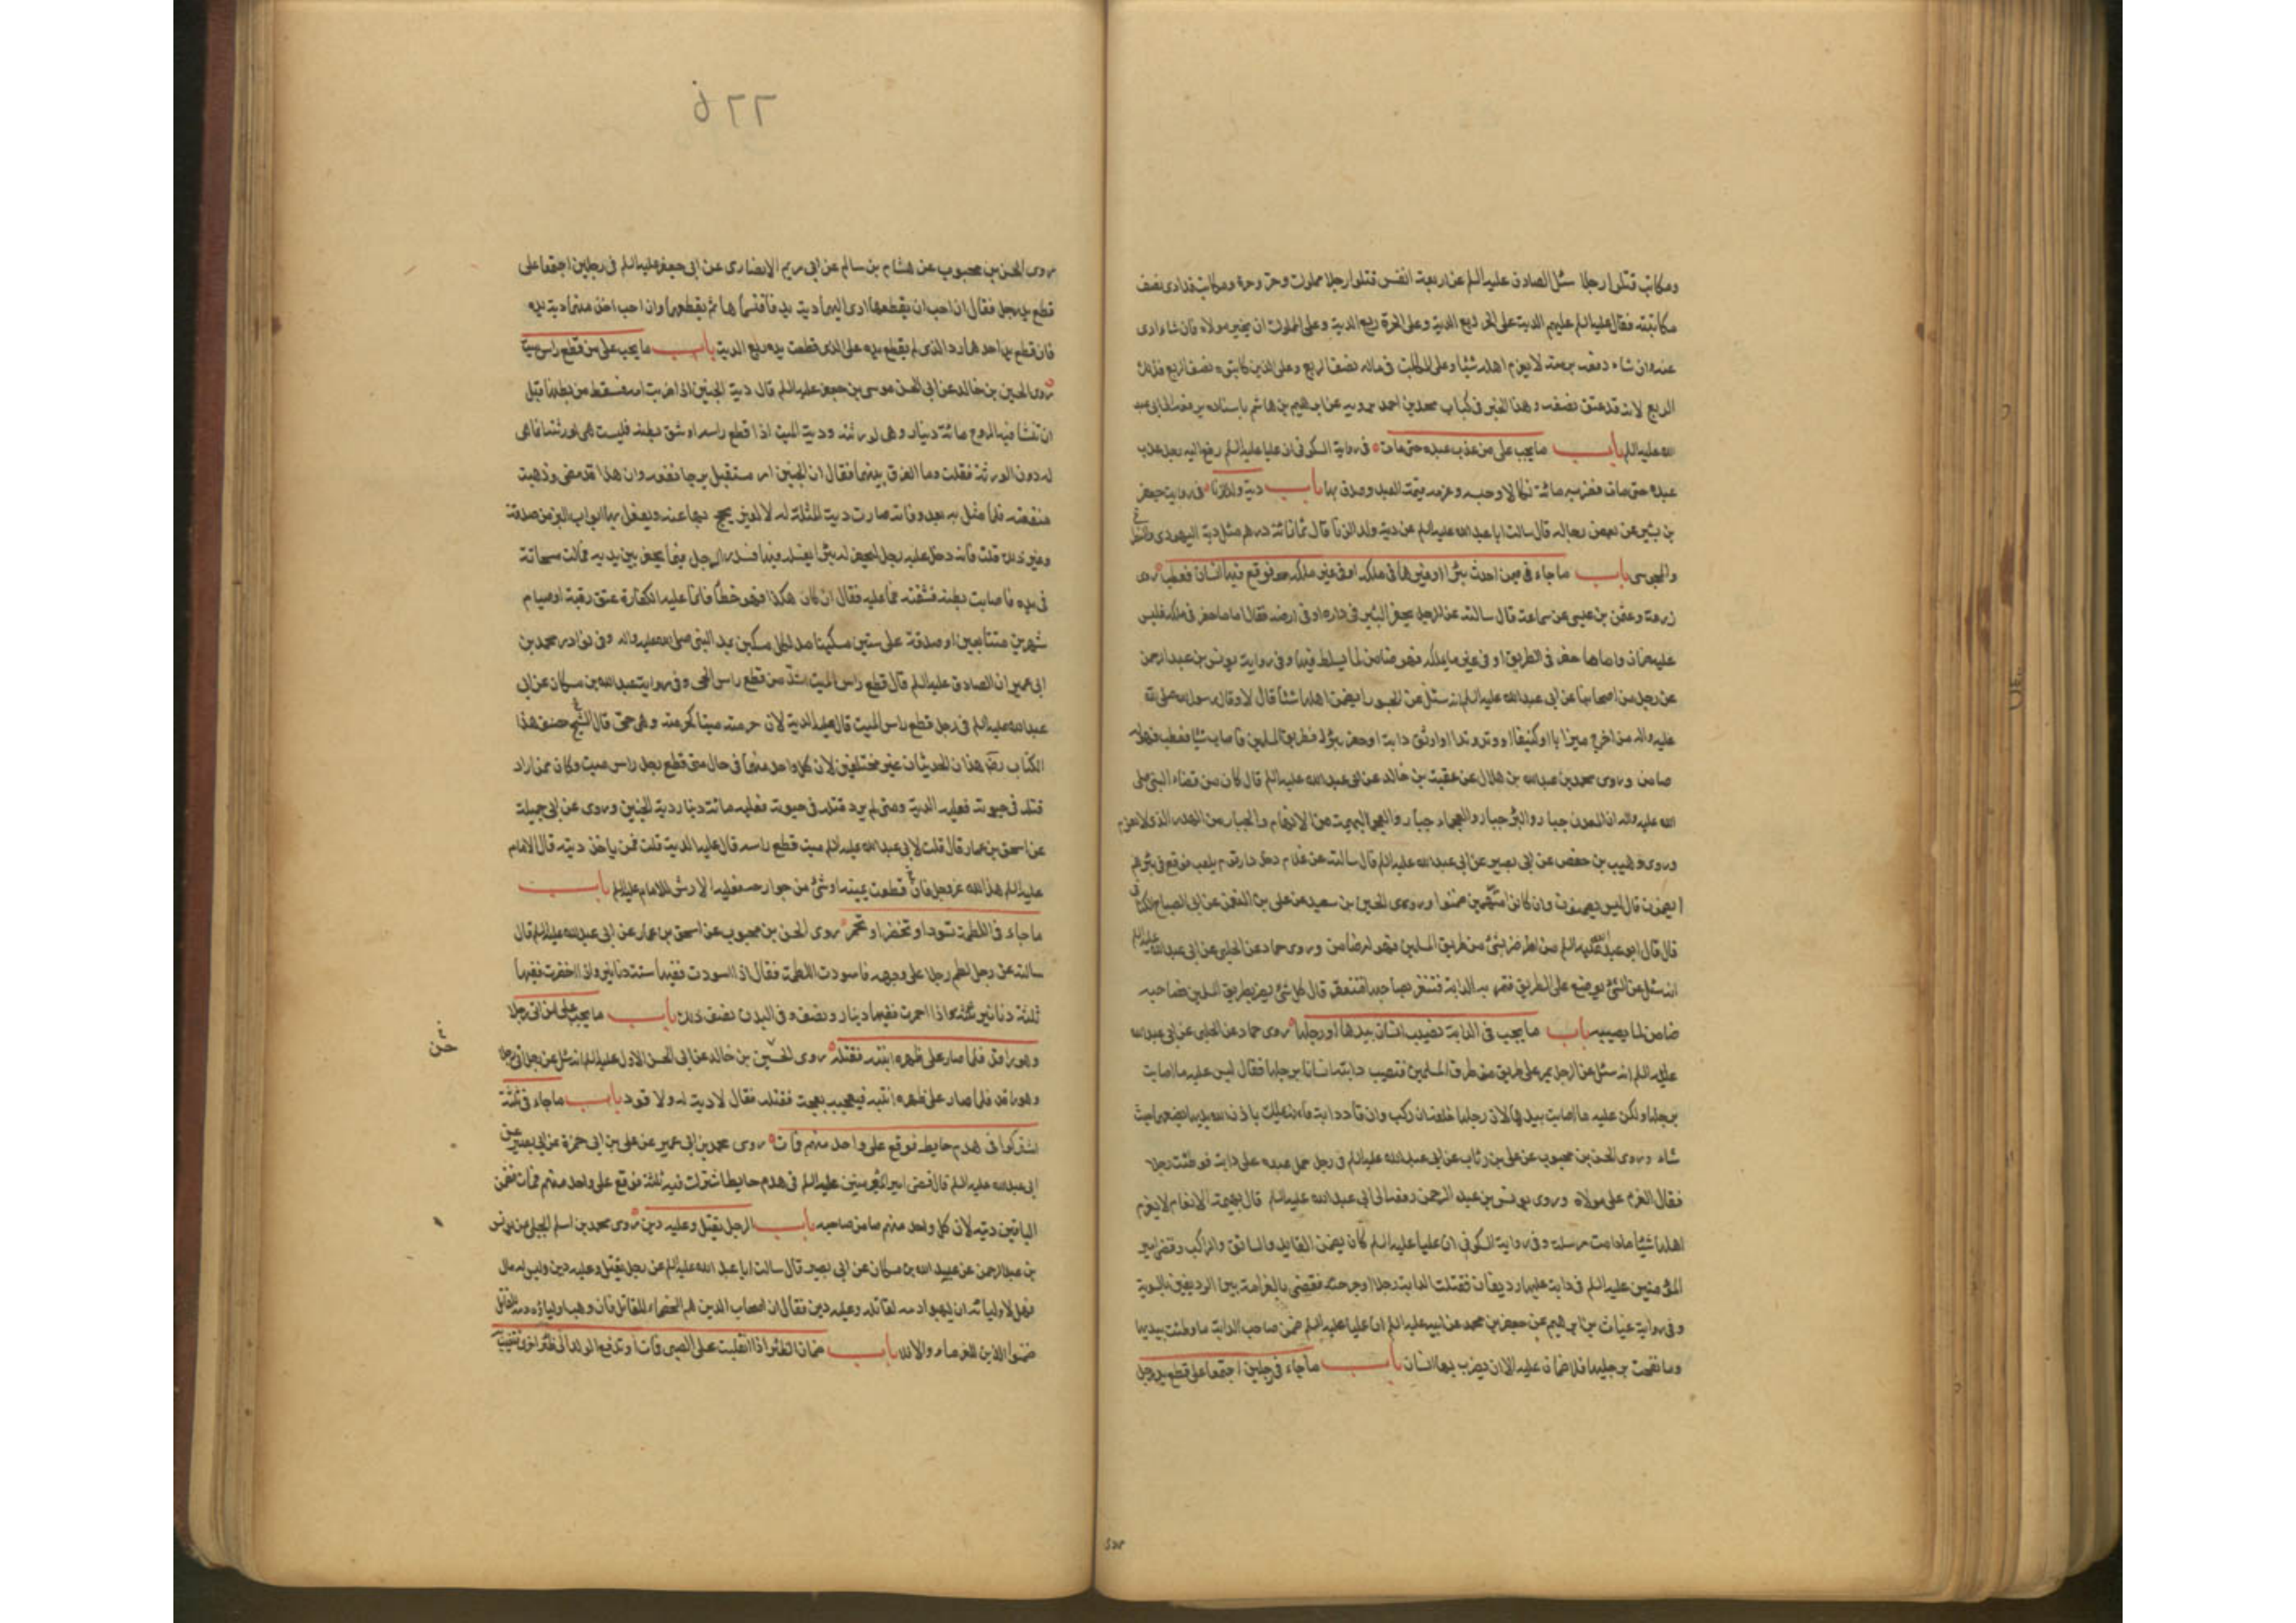 ومكاتب قتلوا رجلا سئل الصادق عليه السلم عن اربعة انفس قتلوا رجلا مملوك وحر وحرة ومكاتب قد ادى نصف
مكاتبته فقال عليه السلم عليهم الدية على الحر ربع الدية وعلى الحرة ربع الدية وعلى المملوك ان يخير مولاه فان شاء ادى
عنه وان شاء دفعه برمته لا يغرم اهله شيئا وعلى المكاتب في ماله نصف الربع وعلى الذين كاتبوه نصف الربع فذلك
الربع لانه قد عتق نصفه وهذا الخبر في كتاب محمد بن احمد يرويه عن ابرهيم بن هاشم باسناده يرفعه الى ابي عبد
الله عليه السلم باب ما يجب على من عذب عبده حتى مات في رواية السكوني ان عليا عليه السلم رفع اليه رجل عذب
عبده حتى مات فضربه مائة نكالا وحبسه وغرمه قيمة العبد وصدق بها باب دية ولد الزنا في رواية جعفر
بن بشير عن بعض رجاله قال سالت ابا عبد الله عليه السلم عن دية ولد الزنا قال ثمانمائة درهم مثل دية اليهودي والنصراني
والمجوسي باب ما جاء فيمن احدث بئرا او غيرها في ملكه او في غير ملكه فوقع فيها انسان فعطب روى
زرعة وعثمن بن عيسى عن سماعة قال سالته عن الرجل يحفر البئر في داره او في ارضه فقال اما ما حفر في ملكه فليس
عليه ضمان واما ما حفر في الطريق او في غير ما يملكه فهو ضامن لما يسقط فيها وفي رواية يونس بن عبد الرحمن
عن رجل من اصحابنا عن ابي عبد الله عليه السلم انه سئل عن الجسور ايضمن اهلها شيئا قال لا وقال رسول الله صلى الله
عليه واله من اخرج ميزابا او كنيفا او وتد وتدا او اوثق دابة او حفر بئرا في طريق المسلمين فاصاب شيئا فعطب فهو له
ضامن وروى محمد بن عبد الله بن هلال عن عقبة بن خالد عن ابي عبد الله عليه السلم قال كان من قضاء النبي صلى
الله عليه واله ان المعدن جبار والبئر جبار والعجماء جبار والعجماء البهيمة من الانعام والجبار من الهدر الذي لا يغرم
وروى وهيب بن حفص عن ابي بصير عن ابي عبد الله عليه السلم قال سالته عن غلام دخل دار قوم يلعب فوقع في بئرهم
ايضمنون قال ليس يضمنون وان كانوا متهمين ضمنوا وروى الحسين بن سعيد عن علي بن النعمن عن ابي الصباح الكناني
قال قال ابو عبد الله عليه السلم من اضر بشئ من طريق المسلمين فهو له ضامن وروى حماد عن الحلبي عن ابي عبد الله عليه السلم
انه سئل عن الشئ يوضع على الطريق فتمر به الدابة فتنفر بصاحبها فتعقره قال كل شئ يضر بطريق المسلمين فصاحبه
ضامن لما يصيبه باب ما يجب في الدابة تصيب انسانا بيدها او رجلها روى حماد عن الحلبي عن ابي عبد الله
عليه السلم انه سئل عن الرجل يمر على طريق من طرق المسلمين فتصيب دابته انسانا برجلها فقال ليس عليه ما اصابت
برجلها ولكن عليه ما اصابت بيدها لان رجلها خلفه ان ركب وان قاد دابة فانه يملك باذن الله يدها يضعها حيث
شاء وروى الحسن بن محبوب عن علي بن رئاب عن ابي عبد الله عليه السلم في رجل حمل عبده على دابة فوطئت رجلا
فقال الغرم على مولاه وروى يونس بن عبد الرحمن رفعه الى ابي عبد الله عليه السلم قال بهيمة الانعام لا يغرم
اهلها شيئا ما دامت مرسلة وفي رواية السكوني ان عليا عليه السلم كان يضمن القايد والسائق والراكب وقضى امير
المؤمنين عليه السلم في دابة عليها رديفان فقتلت الدابة رجلا او جرحته فقضى بالغرامة بين الرديفين بالسوية
وفي رواية غياث بن ابرهيم عن جعفر بن محمد عن ابيه عليه السلم ان عليا عليه السلم ضمن صاحب الدابة ما وطئت بيديها
وما نفحت برجليها فلا ضمان عليه الا ان يضرب بها انسان باب ما جاء في رجلين اجتمعا على قطع يد رجل
٢٢٥
روى الحسن بن محبوب عن هشام بن سالم عن ابي مريم الانصاري عن ابي جعفر عليه السلم في رجلين اجتمعا على
قطع يد رجل فقال ان احب ان يقطعهما ادى اليهما دية يد فاقتسماها ثم يقطعهما وان احب اخذ منهما دية يد
فان قطع يد احدهما رد الذي لم يقطع يده على الذي قطعت يده ربع الدية باب ما يجب على من قطع راس ميت
روى الحسين بن خالد عن ابي الحسن موسى بن جعفر عليه السلم قال دية الجنين اذا ضربت امه فسقط من بطنها قبل
ان تنشا فيه الروح مائة دينار وهي لورثته ودية الميت اذا قطع راسه او شق بطنه فليست هي لورثته انما هي
له دون الورثة فقلت وما الفرق بينهما فقال ان الجنين امر مستقبل يرجا نفعه وان هذا قد مضى وذهبت
منفعته فلما مثل به بعد وفاته صارت دية المثلة له لا لغيره يحج بها عنه ويفعل بها ابواب البر من صدقة
وغير ذلك قلت فانه دخل عليه رجل ليحفر له بئرا يغسله فيها فسدر الرجل فيما يحفر بين يديه فمالت مسحاته
في يده فاصابت بطنه فشقته فما عليه فقال ان كان هكذا فهو خطأ فانما عليه الكفارة عتق رقبة او صيام
شهرين متتابعين او صدقة على ستين مسكينا مد لكل مسكين بمد النبي صلى الله عليه واله وفي نوادر محمد بن
ابي عمير ان الصادق عليه السلم قال قطع راس الميت اشد من قطع راس الحي وفي رواية عبد الله بن مسكان عن ابي
عبد الله عليه السلم في رجل قطع راس الميت قال عليه الدية لان حرمته ميتا كحرمته وهو حي قال الشيخ مصنف هذا
الكتاب رضه هذان الحديثان غير مختلفين لان كل واحد منهما في حال متى قطع رجل راس ميت وكان ممن اراد
قتله في حيوته فعليه الدية ومتى لم يرد قتله في حيوته فعليه مائة دينار دية الجنين وروى عن ابي جميلة
عن اسحق بن عمار قال قلت لابي عبد الله عليه السلم ميت قطع راسه قال عليه الدية قلت فمن ياخذ ديته قال الامام
عليه السلم هذا لله عز وجل فان قطعت يمينه او شئ من جوارحه فعليه الارش للامام عليه السلم باب
ما جاء في اللطمة تسود او تخضر او تحمر روى الحسن بن محبوب عن اسحق بن عمار عن ابي عبد الله عليه السلم قال
سالته عن رجل لطم رجلا على وجهه فاسودت اللطمة فقال اذا اسودت ففيها ستة دنانير واذا اخضرت ففيها
ثلثة دنانير واذا احمرت ففيها دينار ونصف وفي البدن نصف ذلك باب ما يجب على من اتى رجلا
وهو راقد فلما صار على ظهره انتبه فقتله روى الحسين بن خالد عن ابي الحسن الاول عليه السلم انه سئل عن رجل اتى رجلا
وهو راقد فلما صار على ظهره انتبه فبعجه بعجة فقتله فقال لا دية له ولا قود باب ما جاء في ثلثة
اشتركوا في هدم حايط فوقع على واحد منهم فمات روى محمد بن ابي عمير عن علي بن ابي حمزة عن ابي بصير عن
ابي عبد الله عليه السلم قال قضى امير المؤمنين عليه السلم في هدم حايط اشترك فيه ثلثة فوقع على واحد منهم فمات فضمن
الباقين ديته لان كل واحد منهم ضامن صاحبه باب الرجل يقتل وعليه دين روى محمد بن اسلم الجبلي عن يونس
بن عبد الرحمن عن عبيد الله بن مسكان عن ابي بصير قال سالت ابا عبد الله عليه السلم عن رجل يقتل وعليه دين وليس له مال
فهل لاوليائه ان يهبوا دمه لقاتله وعليه دين فقال ان اصحاب الدين هم الخصماء للقاتل فان وهب اولياؤه دمه للقاتل
ضمنوا الدين للغرماء والا فلا باب ضمان الظئر اذا انقلبت على الصبي فمات او تدفع الولد الى ظئر اخرى فتغيب